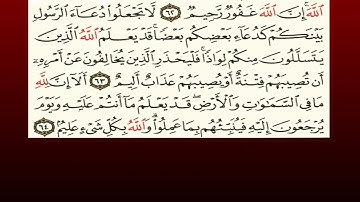 ٱللَّهَۚ إِنَّ ٱللَّهَ غَفُورٌ رَّحِيمٌ ٦٢ لَّا تَجْعَلُوا۟ دُعَآءَ ٱلرَّسُولِ
بَيْنَكُمْ كَدُعَآءِ بَعْضِكُم بَعْضًاۚ قَدْ يَعْلَمُ ٱللَّهُ ٱلَّذِينَ
يَتَسَلَّلُونَ مِنكُمْ لِوَاذًاۚ فَلْيَحْذَرِ ٱلَّذِينَ يُخَالِفُونَ عَنْ أَمْرِهِۦٓ
أَن تُصِيبَهُمْ فِتْنَةٌ أَوْ يُصِيبَهُمْ عَذَابٌ أَلِيمٌ ٦٣ أَلَآ إِنَّ لِلَّهِ
مَا فِى ٱلسَّمَٰوَٰتِ وَٱلْأَرْضِۖ قَدْ يَعْلَمُ مَآ أَنتُمْ عَلَيْهِ وَيَوْمَ
يُرْجَعُونَ إِلَيْهِ فَيُنَبِّئُهُم بِمَا عَمِلُوا۟ۗ وَٱللَّهُ بِكُلِّ شَىْءٍ عَلِيمٌۢ ٦٤